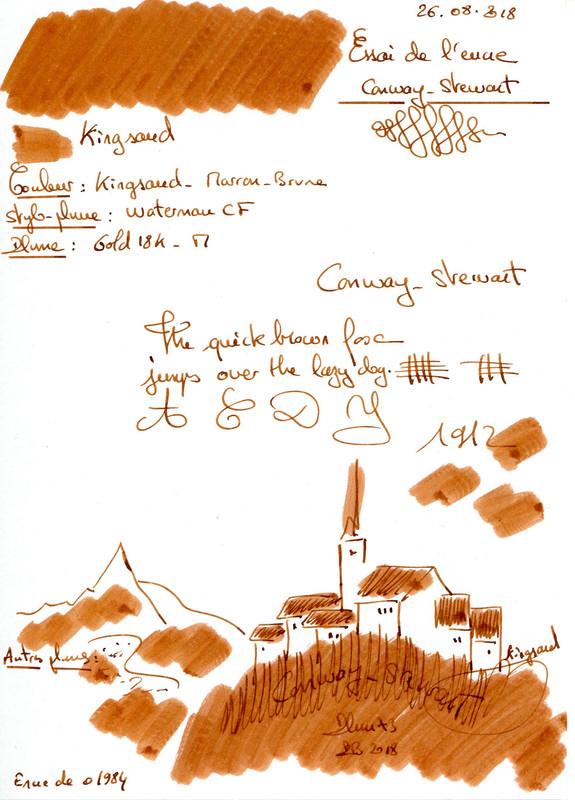 26.08.2018
Essai de l'encre
Conway-Stewart
Kingsand
Couleur : Kingsand - Marron - Brune
Stylo-plume : Waterman CF
Plume : Gold 18k - M
Conway-Stewart
The quick brown fox
jumps over the lazy dog.
A E D Y
1912
Autres plumes :
Kingsand
Conway-Stewart
2018
Encre de 1984